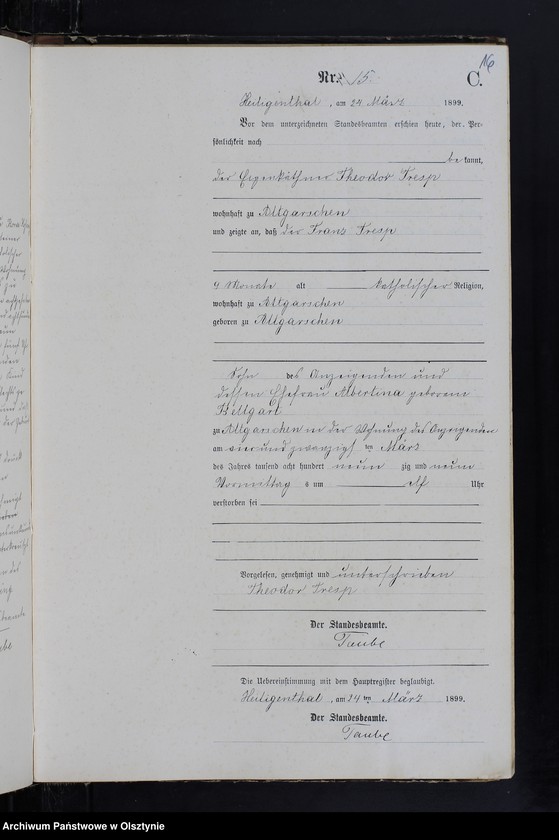 16
Nr. 15.
C.
Heiligenthal, am 24 März 1899.
Vor dem unterzeichneten Standesbeamten erschien heute, der Per-
sönlichkeit nach
be kannt,
der Eigenkäthner Theodor Tresp
wohnhaft zu Altgarschen
und zeigte an, daß der Franz Tresp
4 Monate alt katholischer Religion,
wohnhaft zu Altgarschen
geboren zu Altgarschen
Sohn des Anzeigenden und
dessen Ehefrau Albertina geborene
zu Altgarschen in der Wohnung des Anzeigenden
am vierundzwanzigsten März
des Jahres tausend acht hundert neun zig und neun
Vormittag s um elf Uhr
verstorben sei
Vorgelesen, genehmigt und unterschrieben
Theodor Tresp
Der Standesbeamte.
Taube
Die Uebereinstimmung mit dem Hauptregister beglaubigt.
Heiligenthal, am 24 ten März 1899.
Der Standesbeamte.
Taube
Archiwum Państwowe w Olsztynie